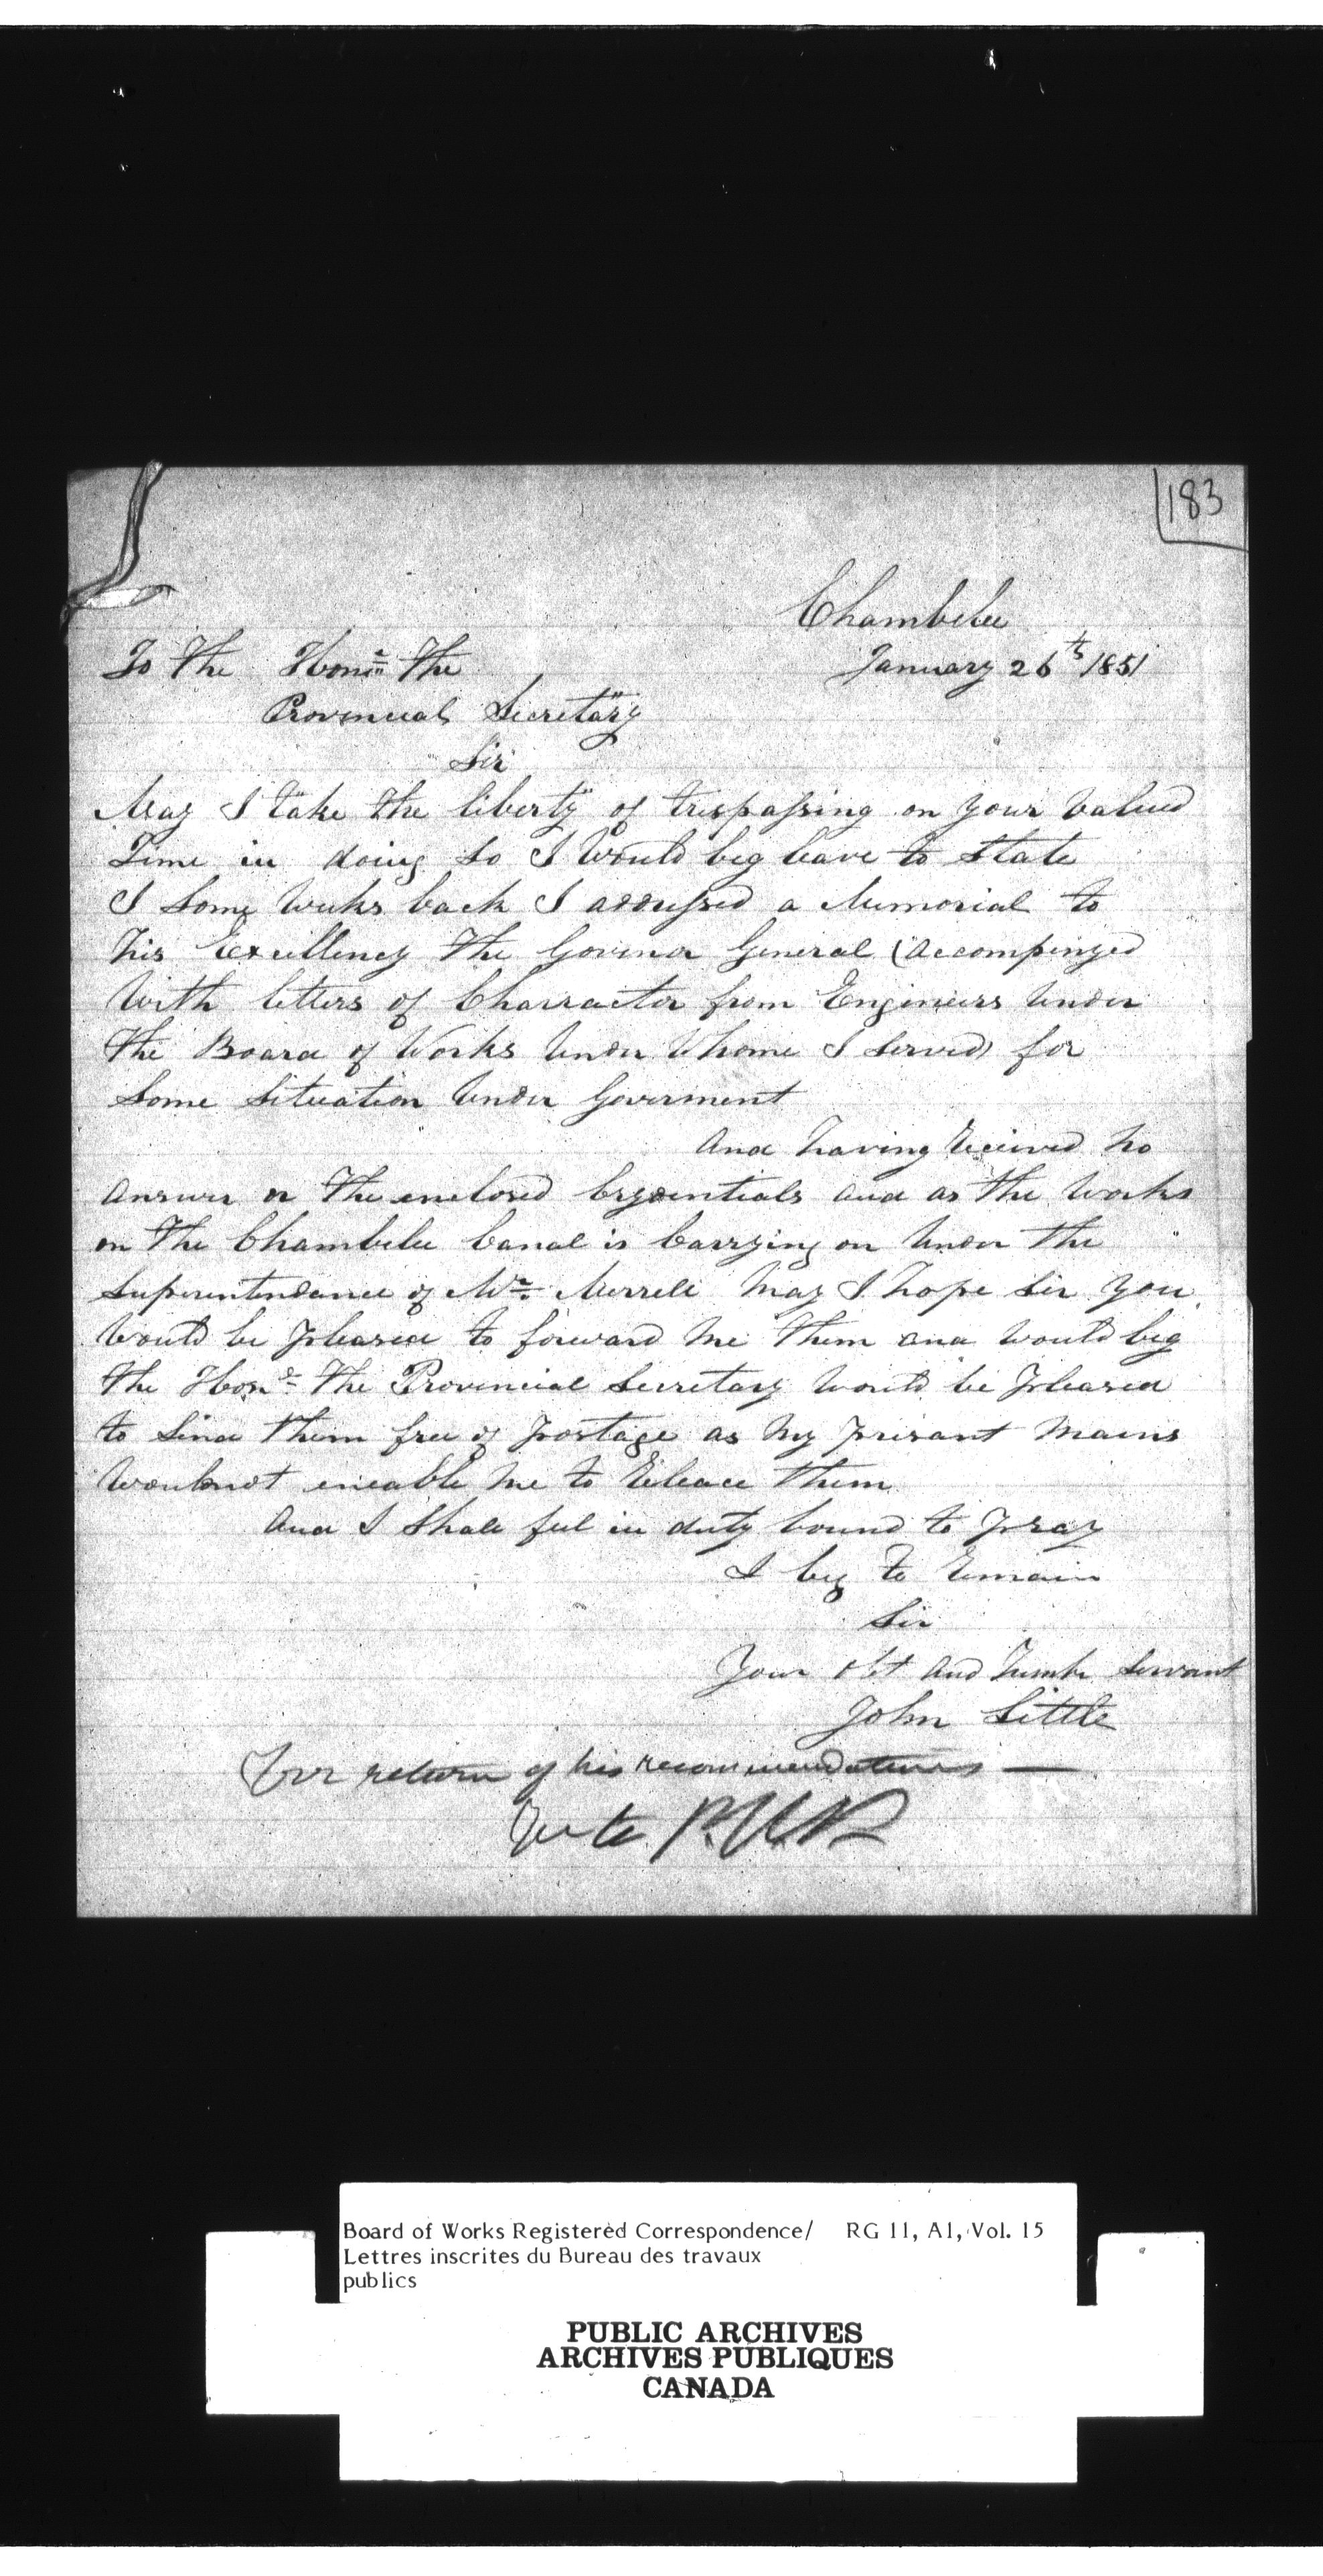 183
Chambelee
To The Honr. The January 26th 1851
Provincial Secretary
Sir
May I take the liberty of trespassing on your valued
Time in doing so I Would beg leave to State
I Some Weeks back I addressed a Memorial to
his Excellency The Govener General (accompinyed
With letters of Charracter from Engineers Under
The Board of Works Under Whome I Served) for
Some Situation Under Goverment
And having Received no
Answer or The enclosed and as The Works
on The Chambelee Canal is Carrying on Under The
Superintendance of Mr. Merrell May I hope Sir you
Would be pleased to forward me Them and Would beg
The Hond. The Provincial Secretary Would be pleased
to Send Them free of postage as my presant Means
Would not eneable me to Releace Them
And I Shall feel in duty bound to pray
I beg to Remain
Sir
Your Obt And humbe Servant
John Little
For return of his recommendations —
Board of Works Registered Correspondence/ RG 11, A1, Vol. 15
Lettres inscrites du Bureau des travaux
publics
PUBLIC ARCHIVES
ARCHIVES PUBLIQUES
CANADA